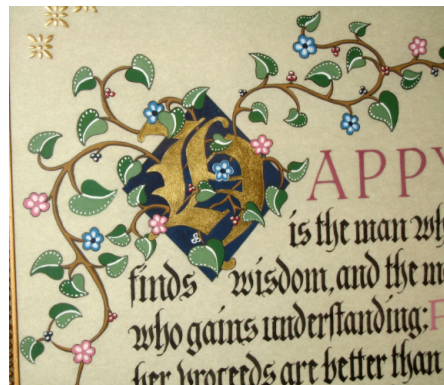 HAPPY
is the man wh
finds wisdom, and the m
who gains understanding: F
her proceeds are better than